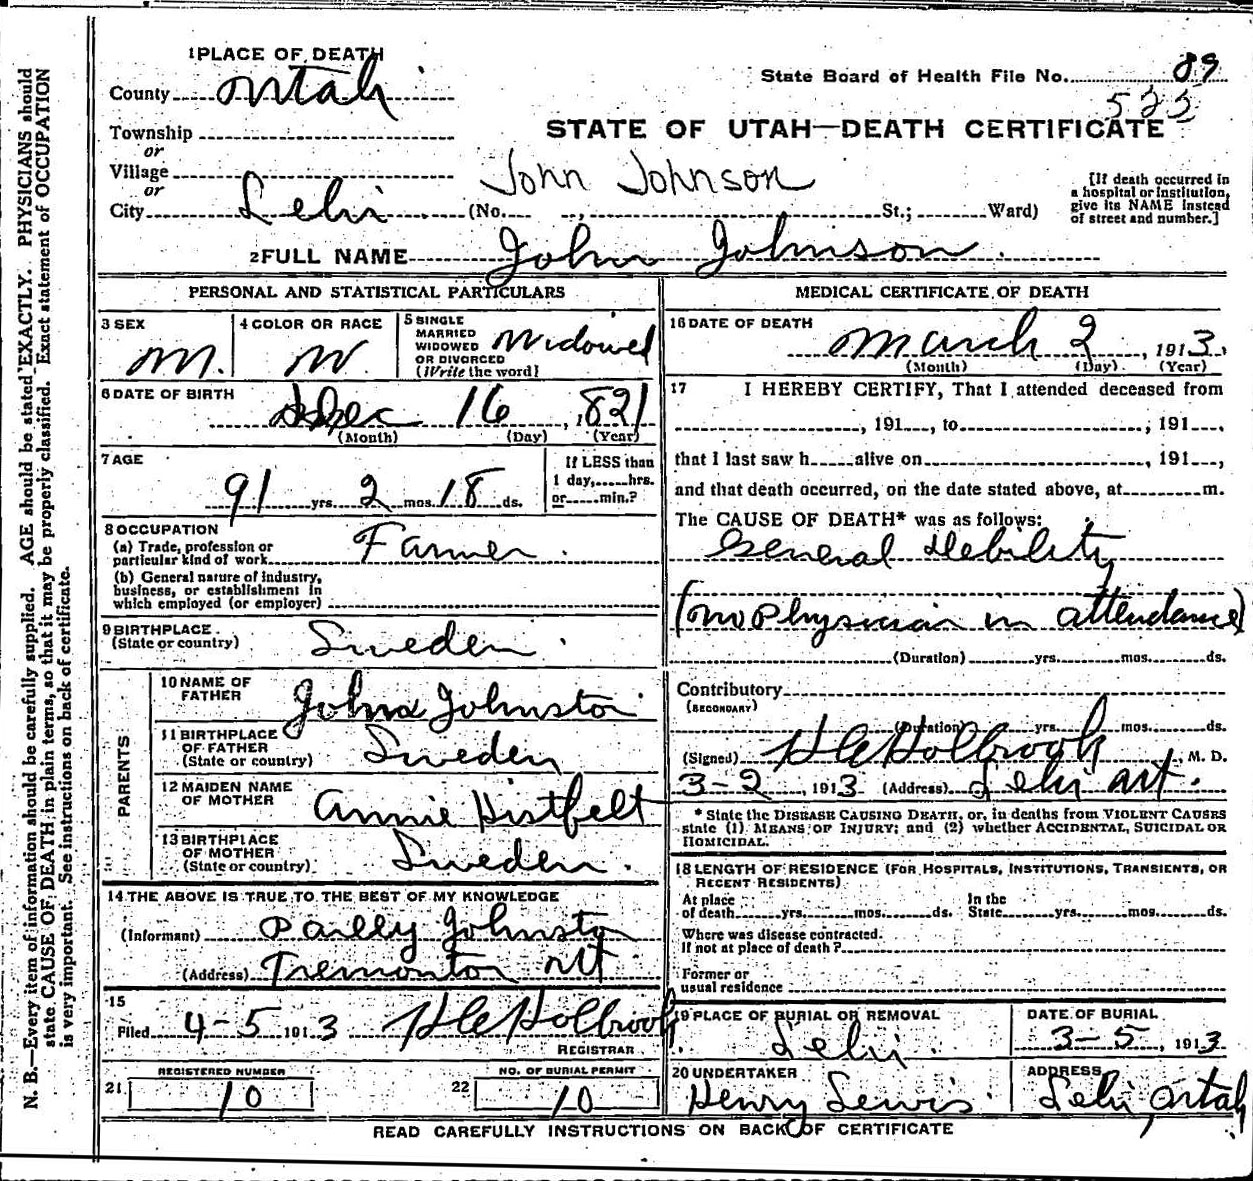 1 PLACE OF DEATH
County Utah
Township
or
Village
or
City Lehi (No. , St.; Ward)
State Board of Health File No. 89
525
STATE OF UTAH—DEATH CERTIFICATE
John Johnson
[If death occurred in
a hospital or institution,
give its NAME instead
of street and number.]
2 FULL NAME John Johnson.
PERSONAL AND STATISTICAL PARTICULARS
3 SEX
M.
4 COLOR OR RACE
W.
5 SINGLE
MARRIED
WIDOWED
OR DIVORCED
(Write the word)
Widowed
6 DATE OF BIRTH
Dec 16, 1821
(Month) (Day) (Year)
7 AGE
91 yrs. 2 mos. 18 ds.
If LESS than
1 day, hrs.
or min.?
8 OCCUPATION
(a) Trade, profession or
particular kind of work Farmer.
(b) General nature of industry,
business, or establishment in
which employed (or employer)
9 BIRTHPLACE.
(State or country) Sweden.
PARENTS
10 NAME OF
FATHER Johna Johnston
11 BIRTHPLACE
OF FATHER
(State or country) Sweden
12 MAIDEN NAME
OF MOTHER Annie Histfelt
13 BIRTHPLACE
OF MOTHER
(State or country) Sweden.
14 THE ABOVE IS TRUE TO THE BEST OF MY KNOWLEDGE
(Informant) Johnston
(Address) Tremonton Ut
15
Filed 4-5 1913 Holbrook
REGISTRAR.
REGISTERED NUMBER
21 10
NO. OF BURIAL PERMIT
22 10
MEDICAL CERTIFICATE OF DEATH
16 DATE OF DEATH
March 2, 1913.
(Month) (Day) (Year)
17 I HEREBY CERTIFY, That I attended deceased from
, 191 , to ; 191 ,
that I last saw h alive on , 191 ,
and that death occurred, on the date stated above, at m.
The CAUSE OF DEATH* was as follows:
General Debility
(no Physician in attendance)
(Duration) yrs. mos. ds.
Contributory
(SECONDARY)
(Duration) yrs. mos. ds.
(Signed) Holbrook, M. D.
3-2, 1913 (Address) Lehi Ut.
* State the DISEASE CAUSING DEATH, or, in deaths from VIOLENT CAUSES
state (1) MEANS OF INJURY; and (2) whether ACCIDENTAL, SUICIDAL OR
HOMICIDAL.
18 LENGTH OF RESIDENCE (FOR HOSPITALS, INSTITUTIONS, TRANSIENTS, OR
RECENT RESIDENTS)
At place In the
of death yrs. mos. ds. State yrs. mos. ds.
Where was disease contracted.
If not at place of death?
Former or
usual residence
19 PLACE OF BURIAL OR REMOVAL
Lehi.
DATE OF BURIAL
3-5, 1913.
20 UNDERTAKER
Henry Lewis.
ADDRESS
Lehi, Utah
READ CAREFULLY INSTRUCTIONS ON BACK OF CERTIFICATE
N. B.—Every item of information should be carefully supplied. AGE should be stated EXACTLY. PHYSICIANS should
state CAUSE OF DEATH in plain terms, so that it may be properly classified. Exact statement of OCCUPATION
is very important. See instructions on back of certificate.